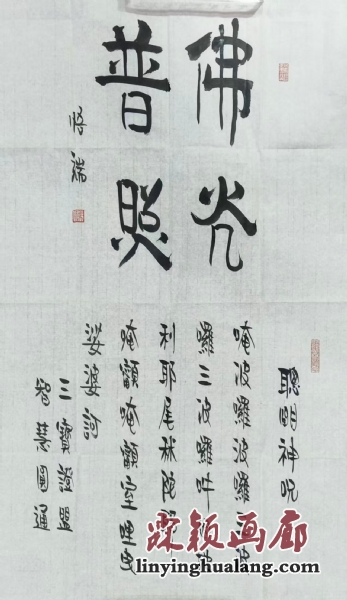 佛光
普照
悟瑞
聪明神咒
唵波囉波囉
囉三波囉吽
利耶尾秫
唵齒唵齒室哩曳
娑婆訶
三寶證盟
智慧圓通
霖颖画廊
linyinghualang.com